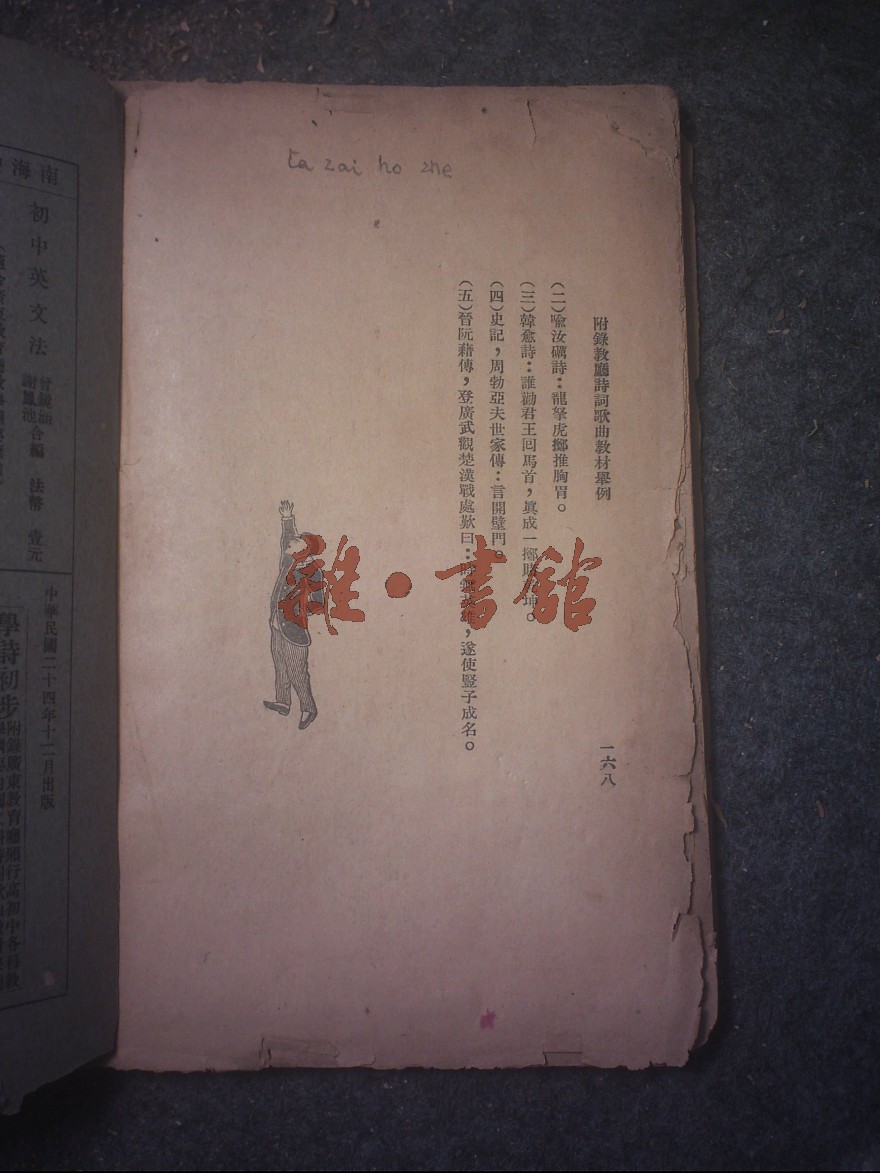 ta zai ho zhe
附錄教廳詩詞歌曲教材舉例
一六八
(二)喩汝礪詩：龍拏虎擲推胸胃。
(三)韓愈詩：誰勸君王囘馬首，眞成一擲賭 坤。
(四)史記，周勃亞夫世家傳：言開壁門。
(五)晉阮藉傳，登廣武觀楚漢戰處歎曰： 雄，遂使豎子成名。
雜·書館
南海
初中英文法
謝鳳池合編 法幣 壹元
中華民國二十四年十二月出版
學詩初步
附錄廣東教育廳頒行高初中各科教